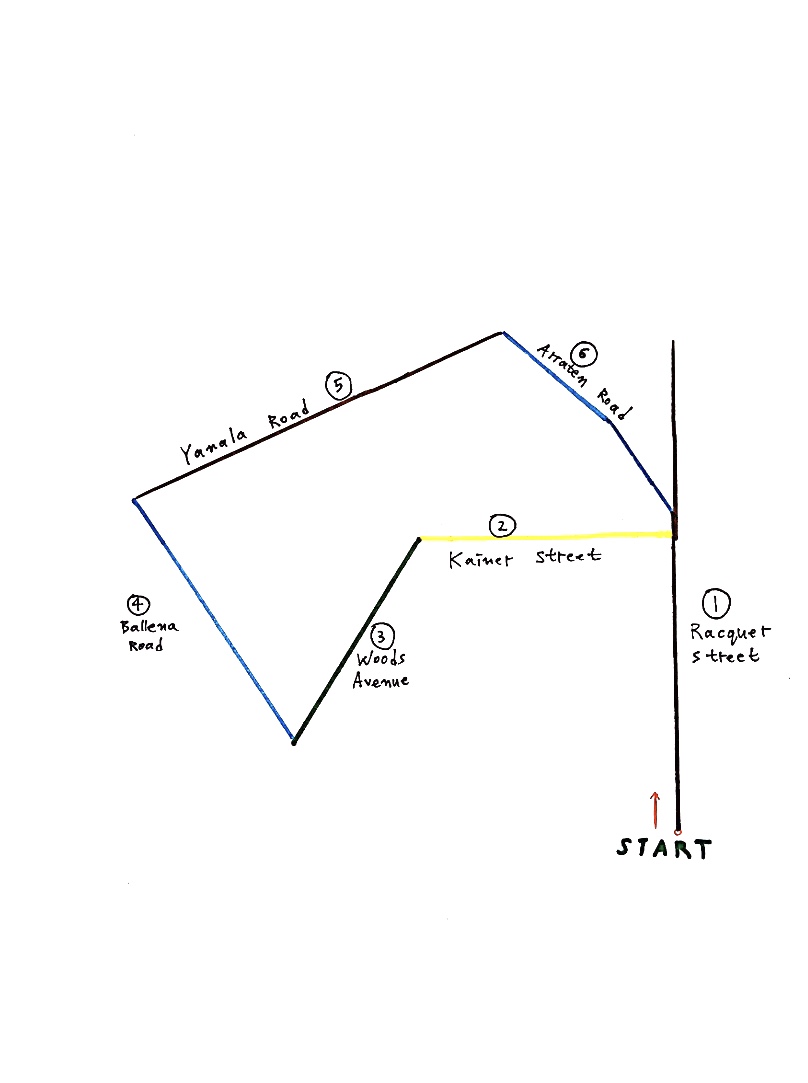 6
Arraten Road
5
Yanala Road
2
Kainer street
4
Ballena
Road
3
Woods
Avenue
1
Racquet
street
START